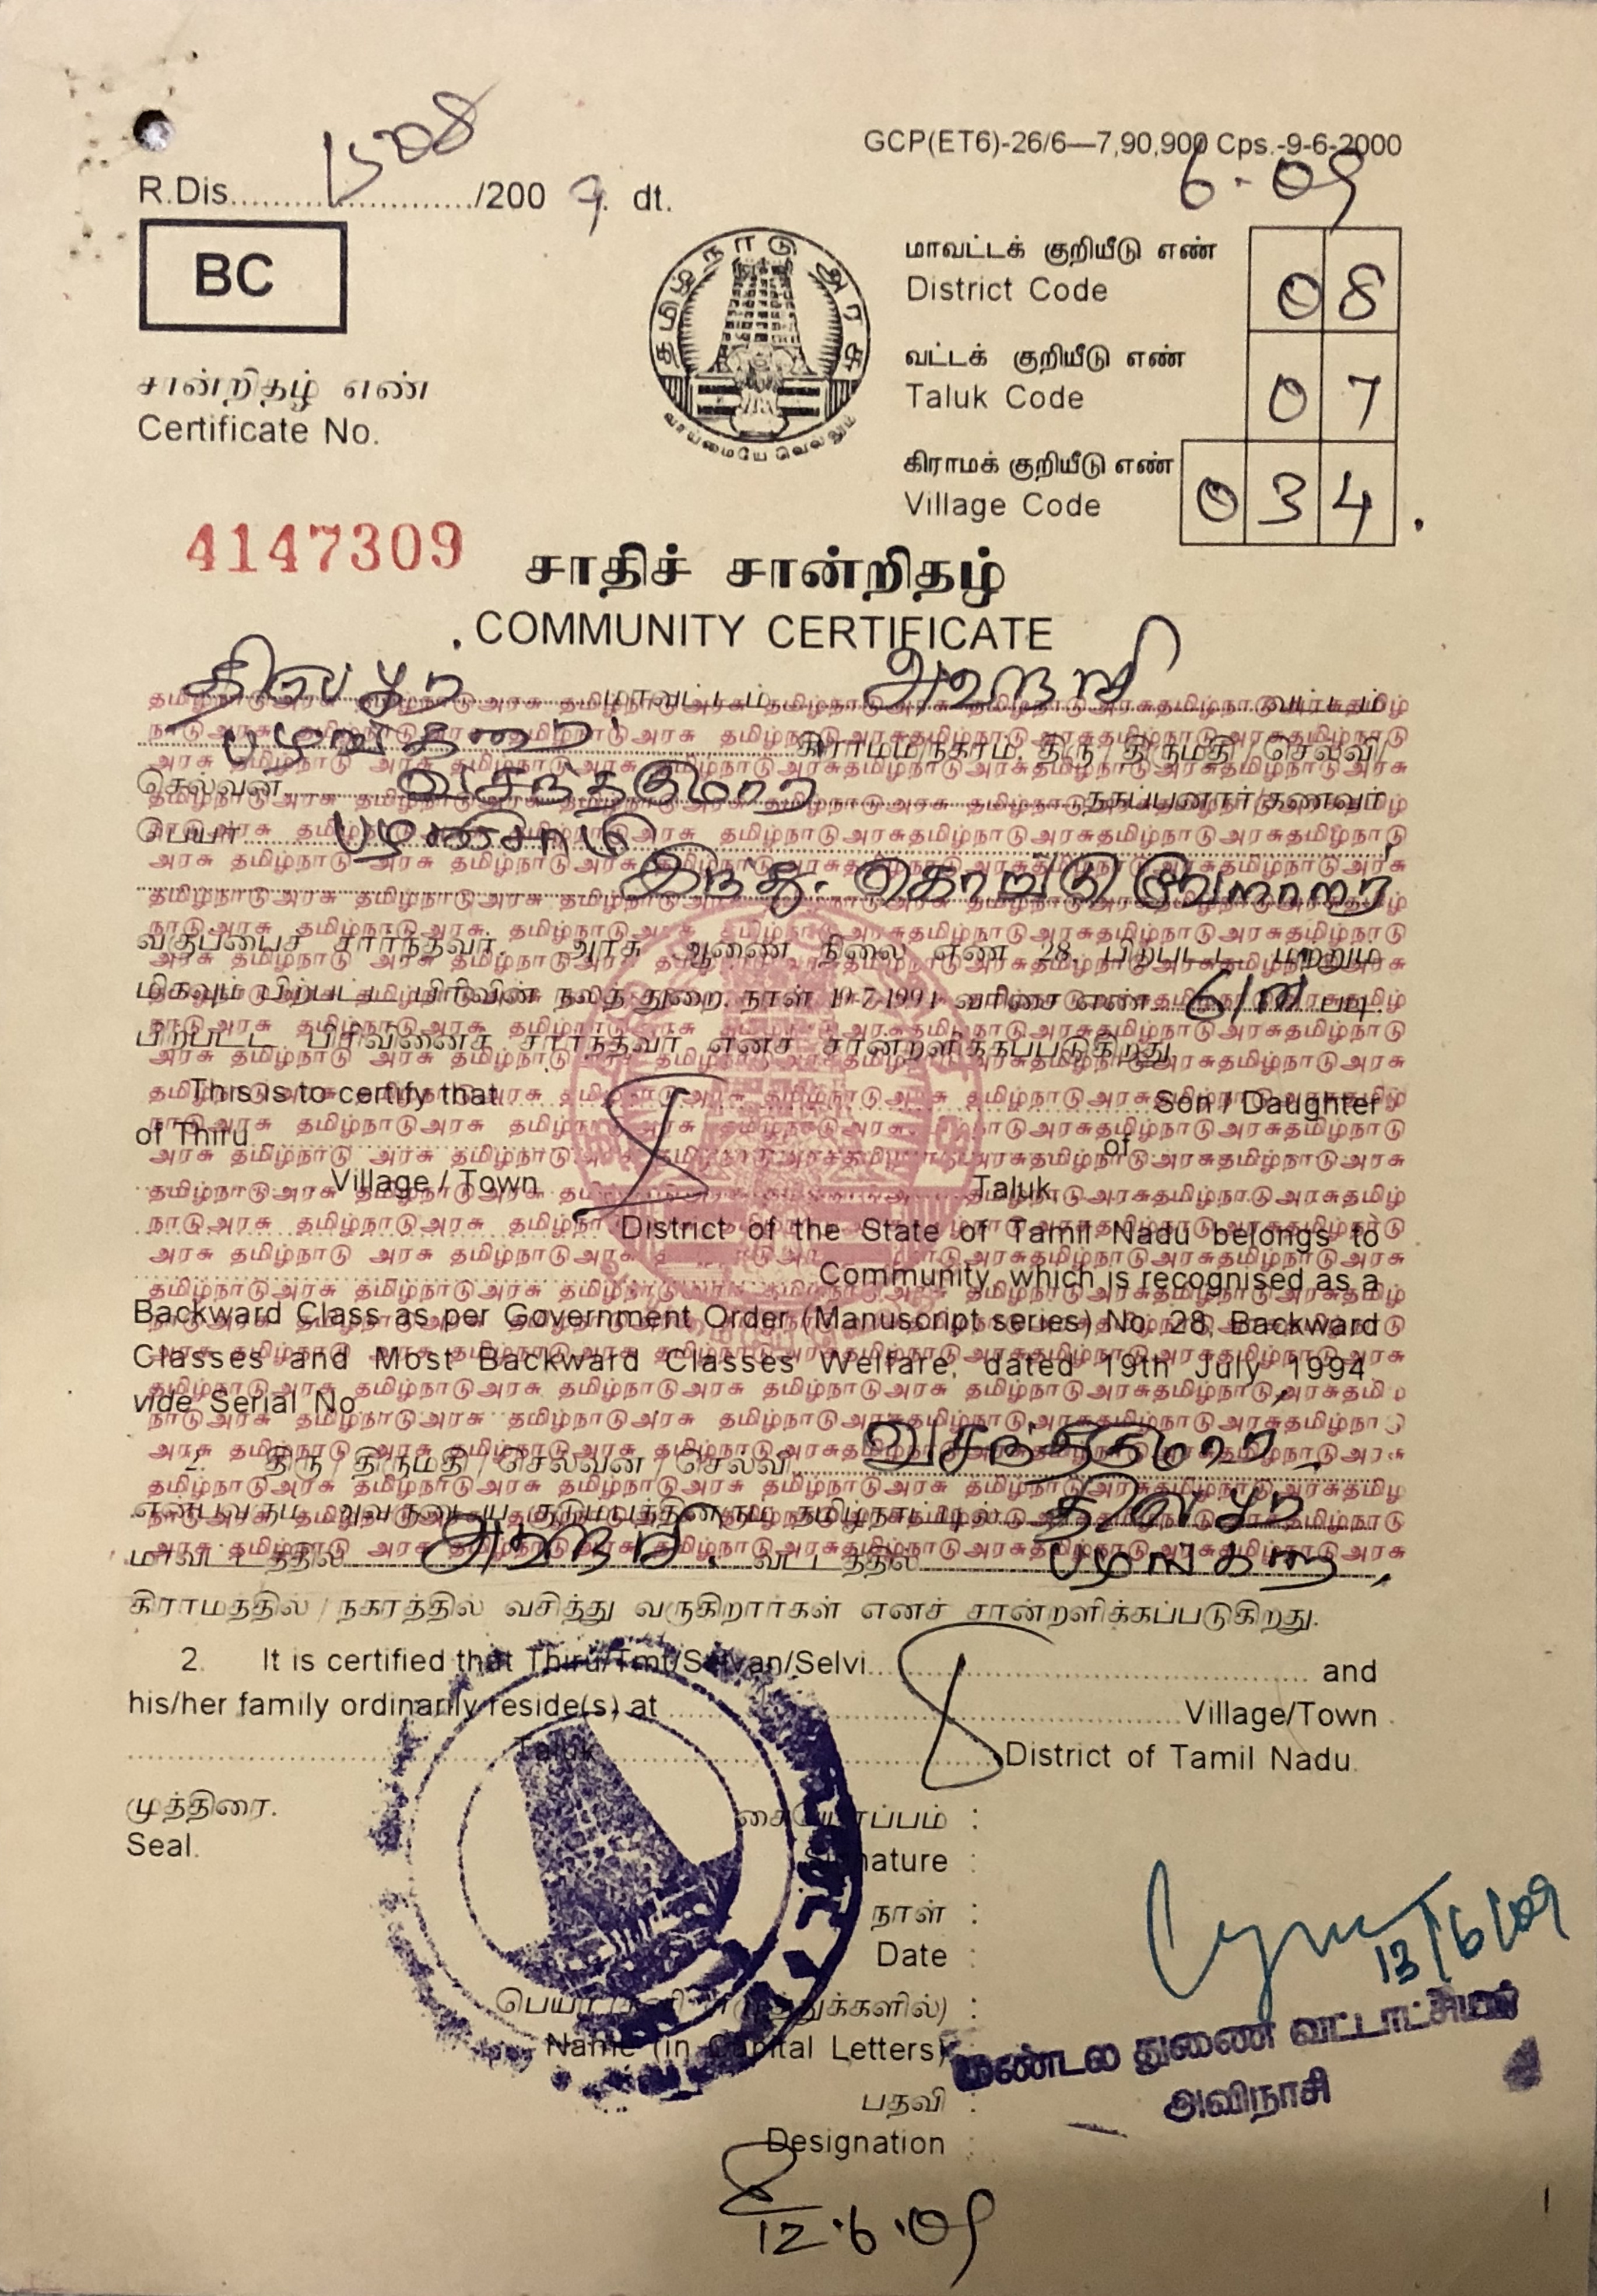 GCP(ET6)-26/6—7,90,900 Cps.-9-6-2000
R.Dis......................../200 9. dt. 6-09
BC
தமிழ்நாடு அரசு
வாய்மையே வெல்லும்
மாவட்டக் குறியீடு எண்
District Code 08
வட்டக் குறியீடு எண்
Taluk Code 07
கிராமக் குறியீடு எண்
Village Code 034
சான்றிதழ் எண்
Certificate No.
4147309
சாதிச் சான்றிதழ்
COMMUNITY CERTIFICATE
மாவட்டம் வட்டம்
கிராமம்/நகரம். திரு / திருமதி / செல்வி/
செல்வன் வசந்தகுமார் தகப்பனார்/கணவர்
பெயர்
இந்து. கொங்கு வேளாளர்
வகுப்பைச் சார்ந்தவர். அரசு ஆணை நிலை எண் 28, பிற்பட்ட மற்றும்
மிகவும் பிற்பட்ட பிரிவின் நலத் துறை, நாள் 19-7-1994 வரிசை எண் படி
பிற்பட்ட பிரிவினைச் சார்ந்தவர் எனச் சான்றளிக்கப்படுகிறது.
This is to certify that Son / Daughter
of Thiru of
Village / Town Taluk
District of the State of Tamil Nadu belongs to
Community, which is recognised as a
Backward Class as per Government Order (Manuscript series) No. 28, Backward
Classes and Most Backward Classes Welfare, dated 19th July 1994
vide Serial No
2. திரு / திருமதி / செல்வன் / செல்வி வசந்தகுமார்
என்பவரும் அவருடைய குடும்பத்தினரும் தமிழ்நாட்டில்
மாவட்டத்தில் வட்டத்தில்
கிராமத்தில் / நகரத்தில் வசித்து வருகிறார்கள் எனச் சான்றளிக்கப்படுகிறது.
2. It is certified that Thiru/Tmt/Selvan/Selvi and
his/her family ordinarily reside(s) at Village/Town
Taluk District of Tamil Nadu.
முத்திரை.
Seal.
கையொப்பம் :
Signature :
13/6/09
நாள் :
Date :
பெயர் (தனி எழுத்துக்களில்) :
Name (in Capital Letters)
மண்டல துணை வட்டாட்சியர்
அவிநாசி
பதவி :
Designation :
12.6.09